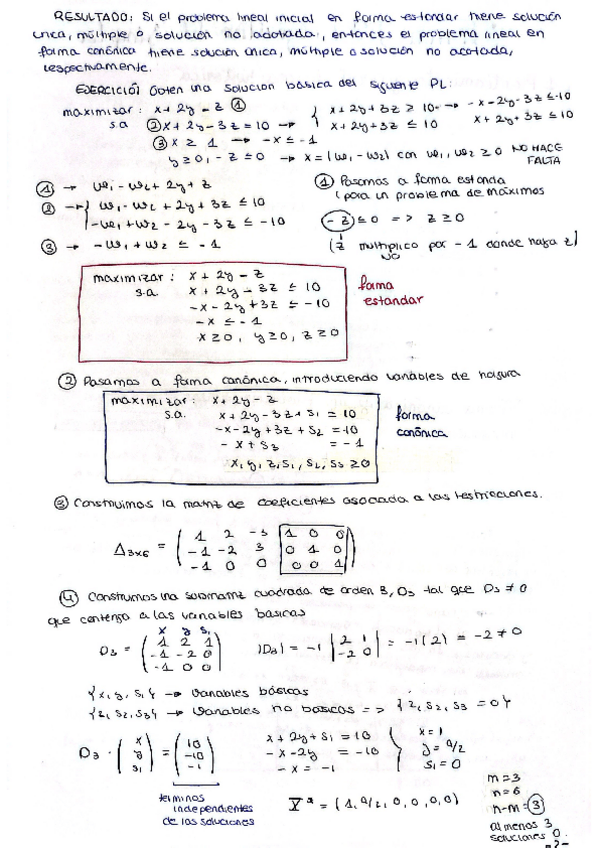 RESULTADO: Si el problema lineal inicial en forma estandar tiene solución
unica, múltiple o solución no acotada, entonces el problema lineal en
forma canónica tiene solución única, múltiple o solución no acotada,
respectivamente.
EJERCICIO Obten una solucion basica del siguiente PL:
maximizar: x + 2y - z ①
s.a ② x + 2y - 3z = 10 → { x + 2y + 3z ≥ 10 → -x - 2y - 3z ≤ -10
x + 2y + 3z ≤ 10 x + 2y + 3z ≤ 10
③ x ≥ 1 → -x ≤ -1
y ≥ 0, -z ≤ 0 → x = (w₁ - w₂) con w₁, w₂ ≥ 0 NO HACE FALTA
① → w₁ - w₂ + 2y + z
② → { w₁ - w₂ + 2y + 3z ≤ 10
-w₁ + w₂ - 2y - 3z ≤ -10
③ → -w₁ + w₂ ≤ -1
① Pasamos a forma estanda
(para un problema de máximos
-z ≤ 0 => z ≥ 0
(z multiplico por -1 donde haya z)
NO
maximizar: x + 2y - z
s.a. x + 2y - 3z ≤ 10
-x - 2y + 3z ≤ -10
-x ≤ -1
x ≥ 0, y ≥ 0, z ≥ 0
forma
estandar
② Pasamos a forma canónica, introduciendo variables de holgura
maximizar: x + 2y - z
s.a. x + 2y - 3z + s₁ = 10
-x - 2y + 3z + s₂ = -10
-x + s₃ = -1
x, y, z, s₁, s₂, s₃ ≥ 0
forma
canónica
③ Construimos la matriz de coeficientes asociada a las restricciones.
A₃ₓ₆ = ( 1 2 -3 1 0 0
-1 -2 3 0 1 0
-1 0 0 0 0 1 )
④ Construimos una submatriz cuadrada de orden 3, D₃ tal que D₃ ≠ 0
que contenga a las variables basicas
x y s₁
D₃ = ( 1 2 1
-1 -2 0
-1 0 0 )
|D₃| = -1 | 2 1
-2 0 | = -1(2) = -2 ≠ 0
{x, y, s₁} → Variables básicas
{z, s₂, s₃} → Variables no basicas => {z, s₂, s₃ = 0}
D₃ · ( x
y
s₁ ) = ( 10
-10
-1 )
x + 2y + s₁ = 10
-x - 2y = -10
-x = -1
x = 1
y = 9/2
s₁ = 0
terminos
independientes
de las soluciones
= (1, 9/2, 0, 0, 0, 0)
m = 3
n = 6
n-m = 3
al menos 3
soluciones 0.
-2-